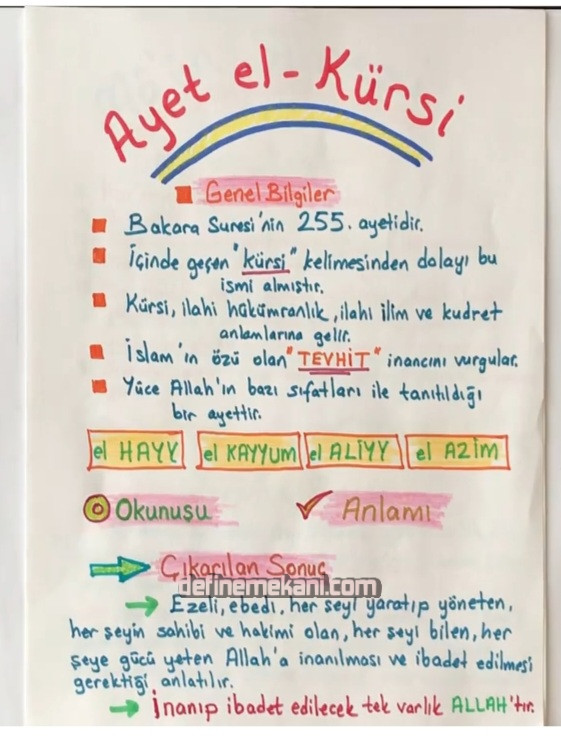 Ayet el-Kürsi
Genel Bilgiler
Bakara Suresi'nin 255. ayetidir.
İçinde geçen "kürsi" kelimesinden dolayı bu
ismi almıştır.
Kürsi, ilahi hükümranlık, ilahi ilim ve kudret
anlamlarına gelir.
İslam'ın özü olan "TEVHİT" inancını vurgular.
Yüce Allah'ın bazı sıfatları ile tanıtıldığı
bir ayettir.
el HAYY el KAYYUM el ALİYY el AZİM
Okunuşu Anlamı
Çıkarılan Sonuç
definemekani.com
Ezeli, ebedi, her şeyi yaratıp yöneten,
her şeyin sahibi ve hakimi olan, her şeyi bilen, her
şeye gücü yeten Allah'a inanılması ve ibadet edilmesi
gerektiği anlatılır.
İnanıp ibadet edilecek tek varlık ALLAH'tır.